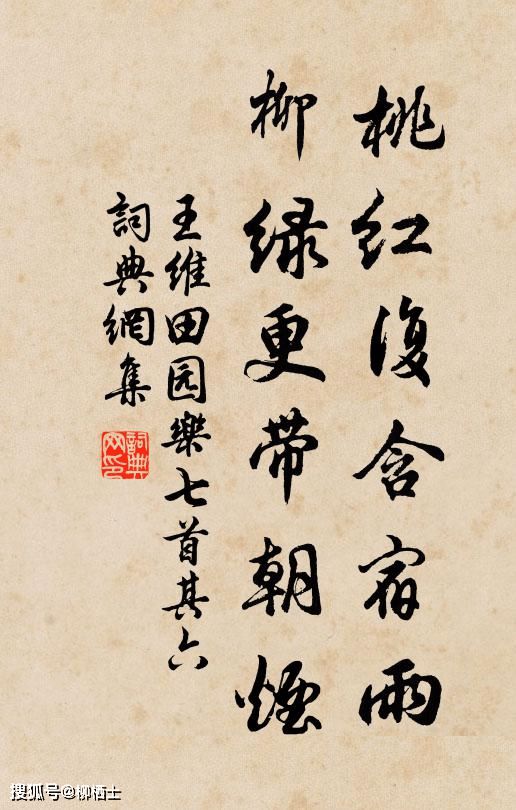 桃红復含宿雨
柳绿更带朝煙
王维田园樂七首其六
詞典網集
詞典网印
搜狐号@柳栖士